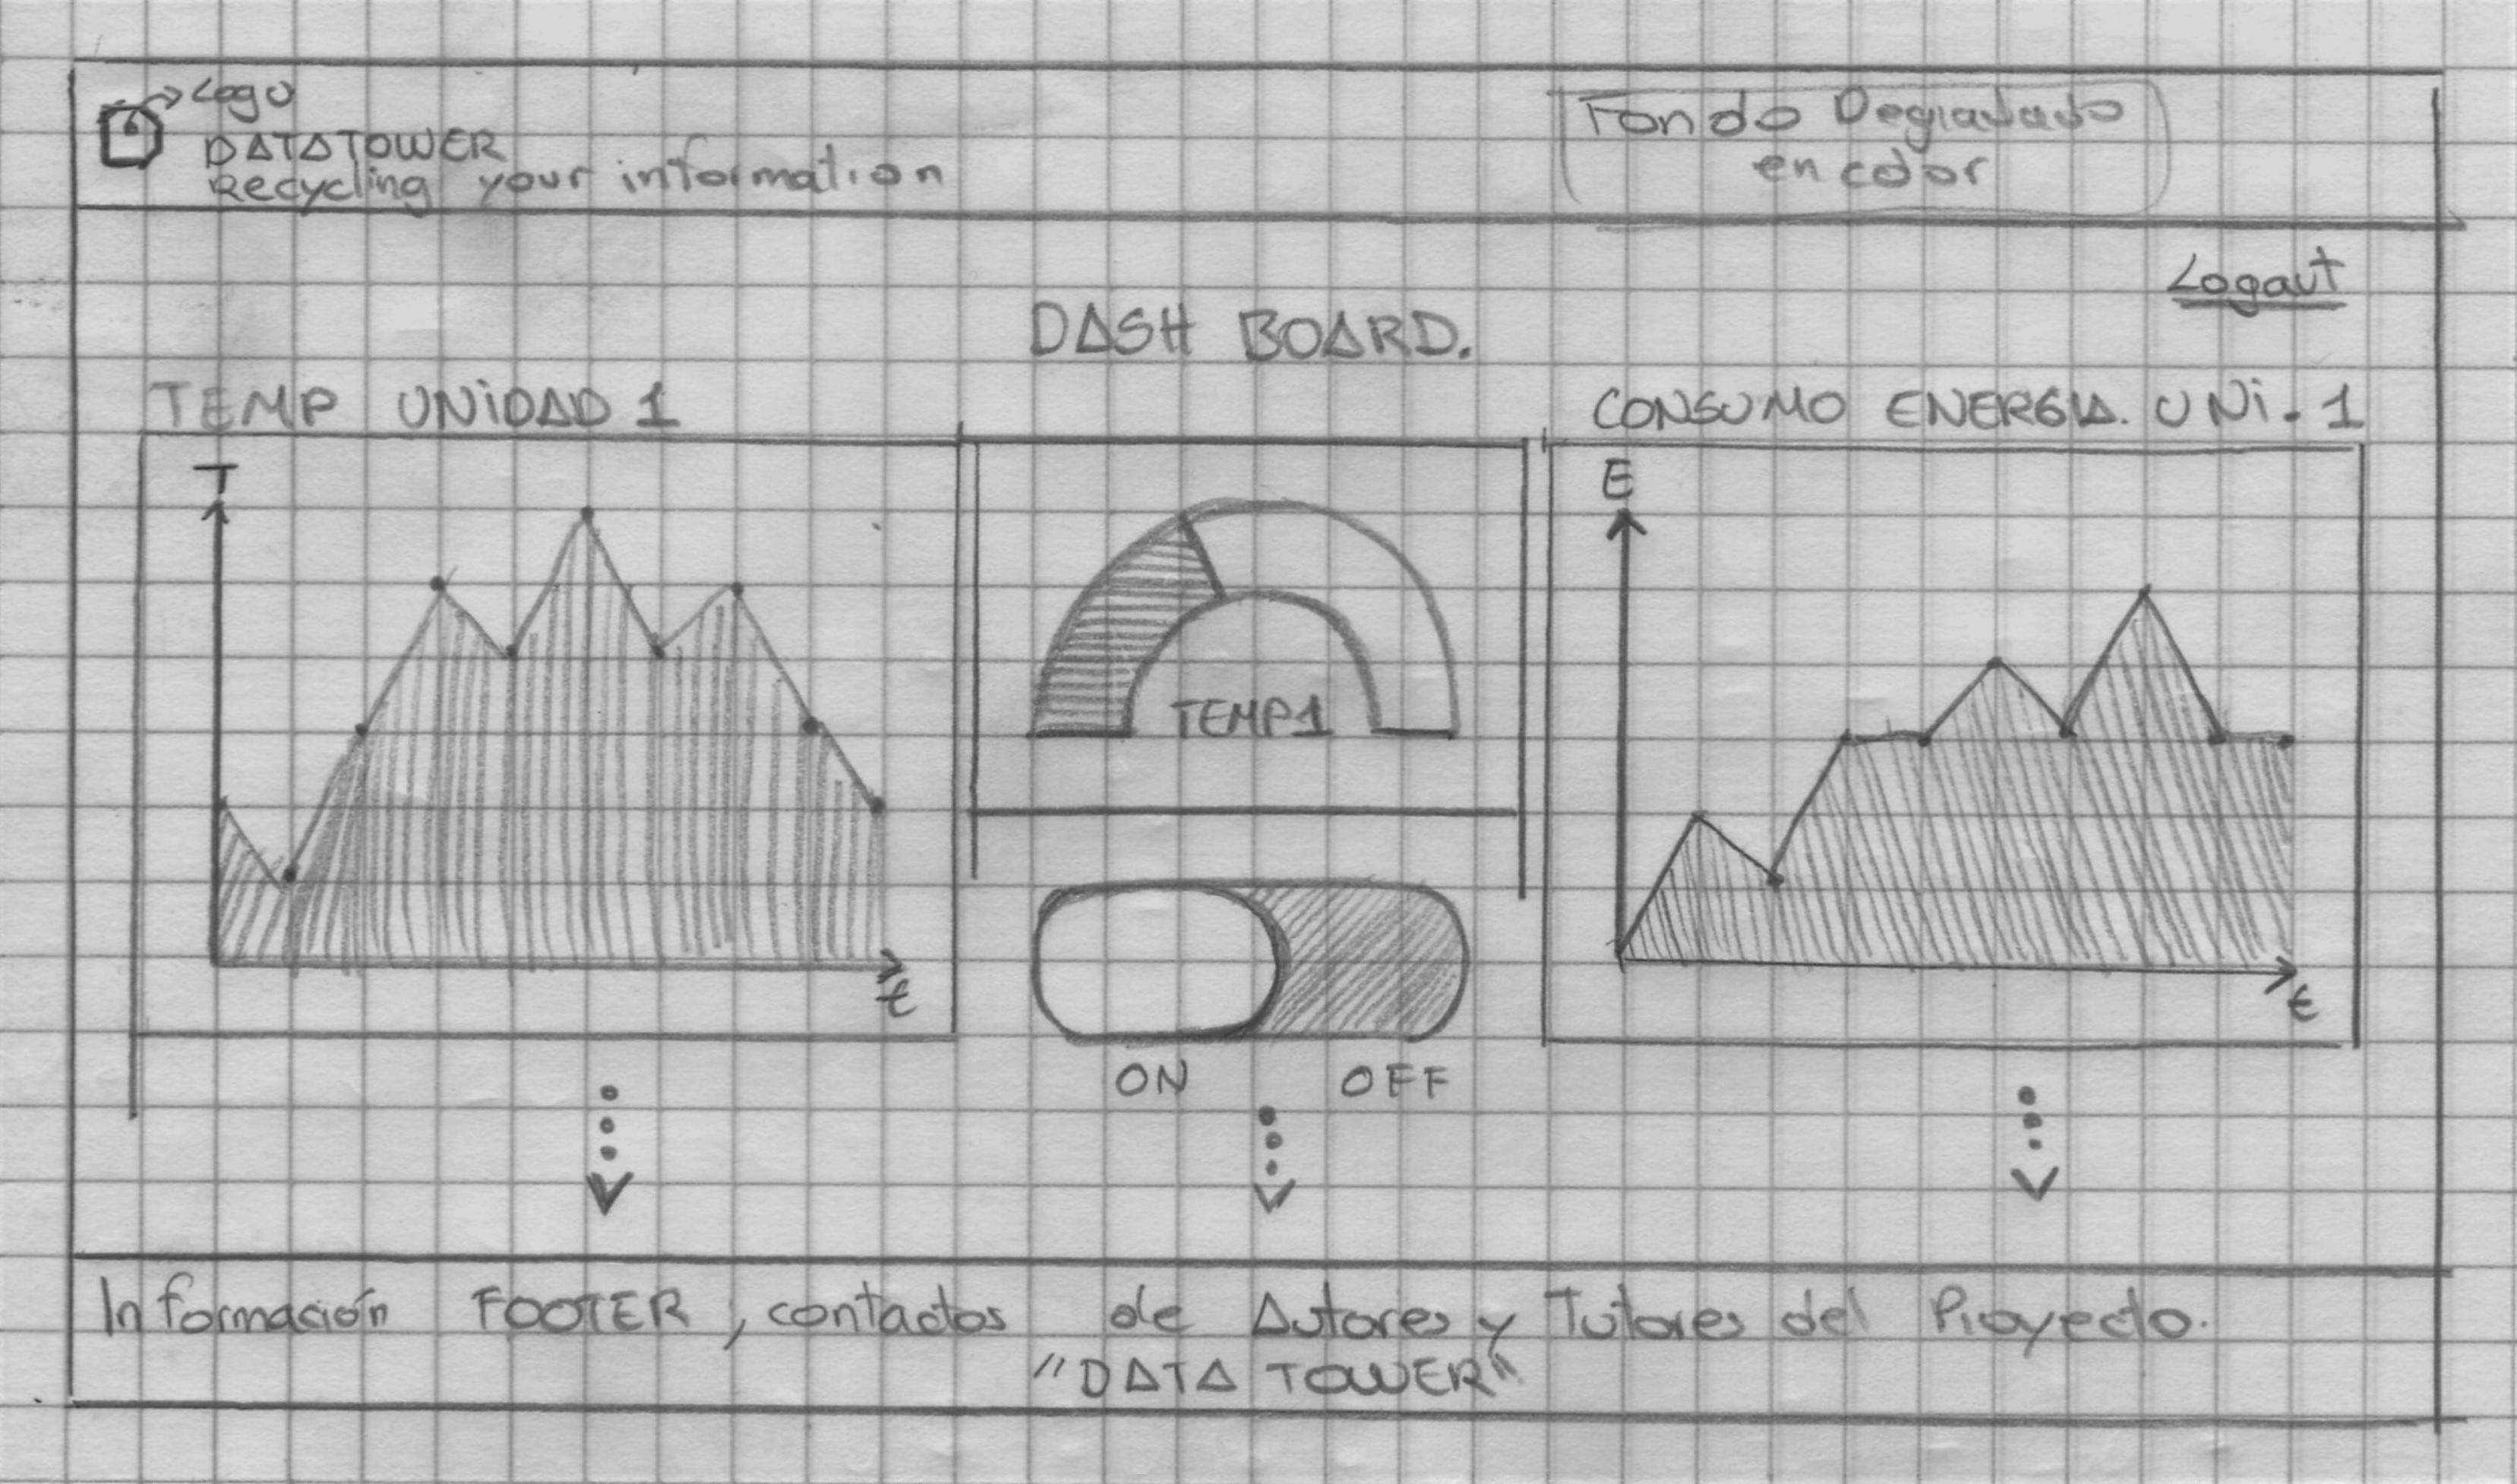 Logo
DATATOWER
Recycling your information
Fondo Degradado
en color
Logaut
DASH BOARD.
TEMP UNiDAD 1
CONSUMO ENERGIA. UNi. 1
T
E
TEMP1
t
t
ON OFF
Información FOOTER, contactos de Autores y Tutores del Proyecto.
"DATA TOWER"